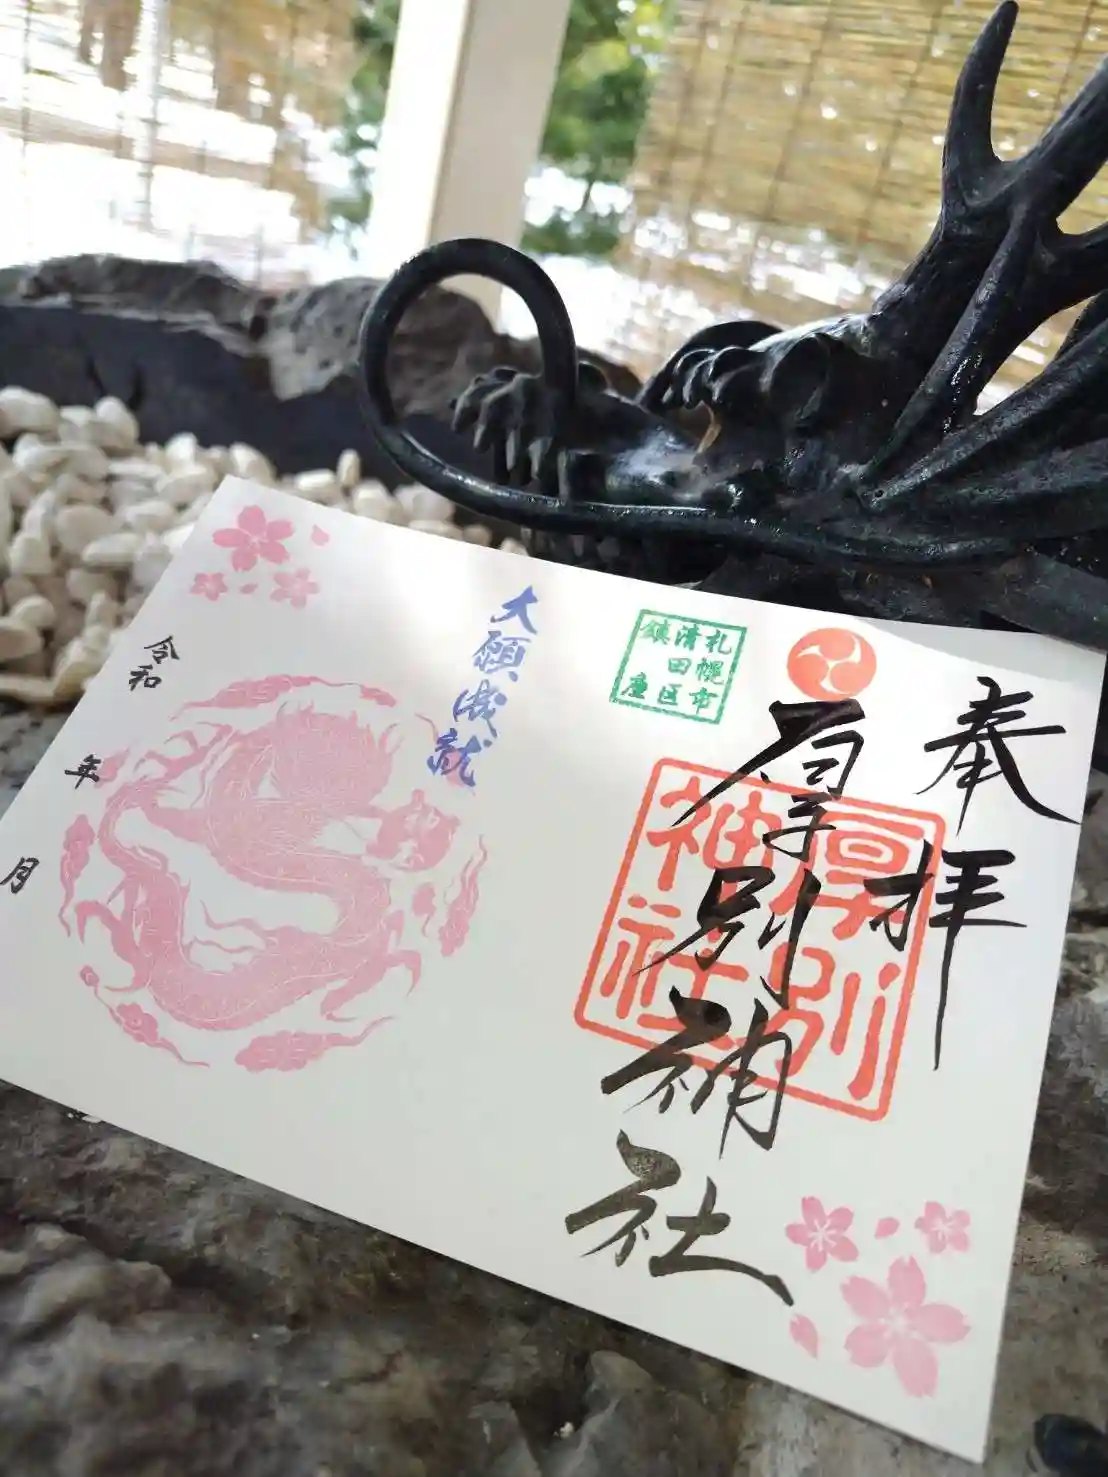 奉拝
厚別神社
厚別
神社
札幌市
清田区
鎮座
大願成就
令和
年
月